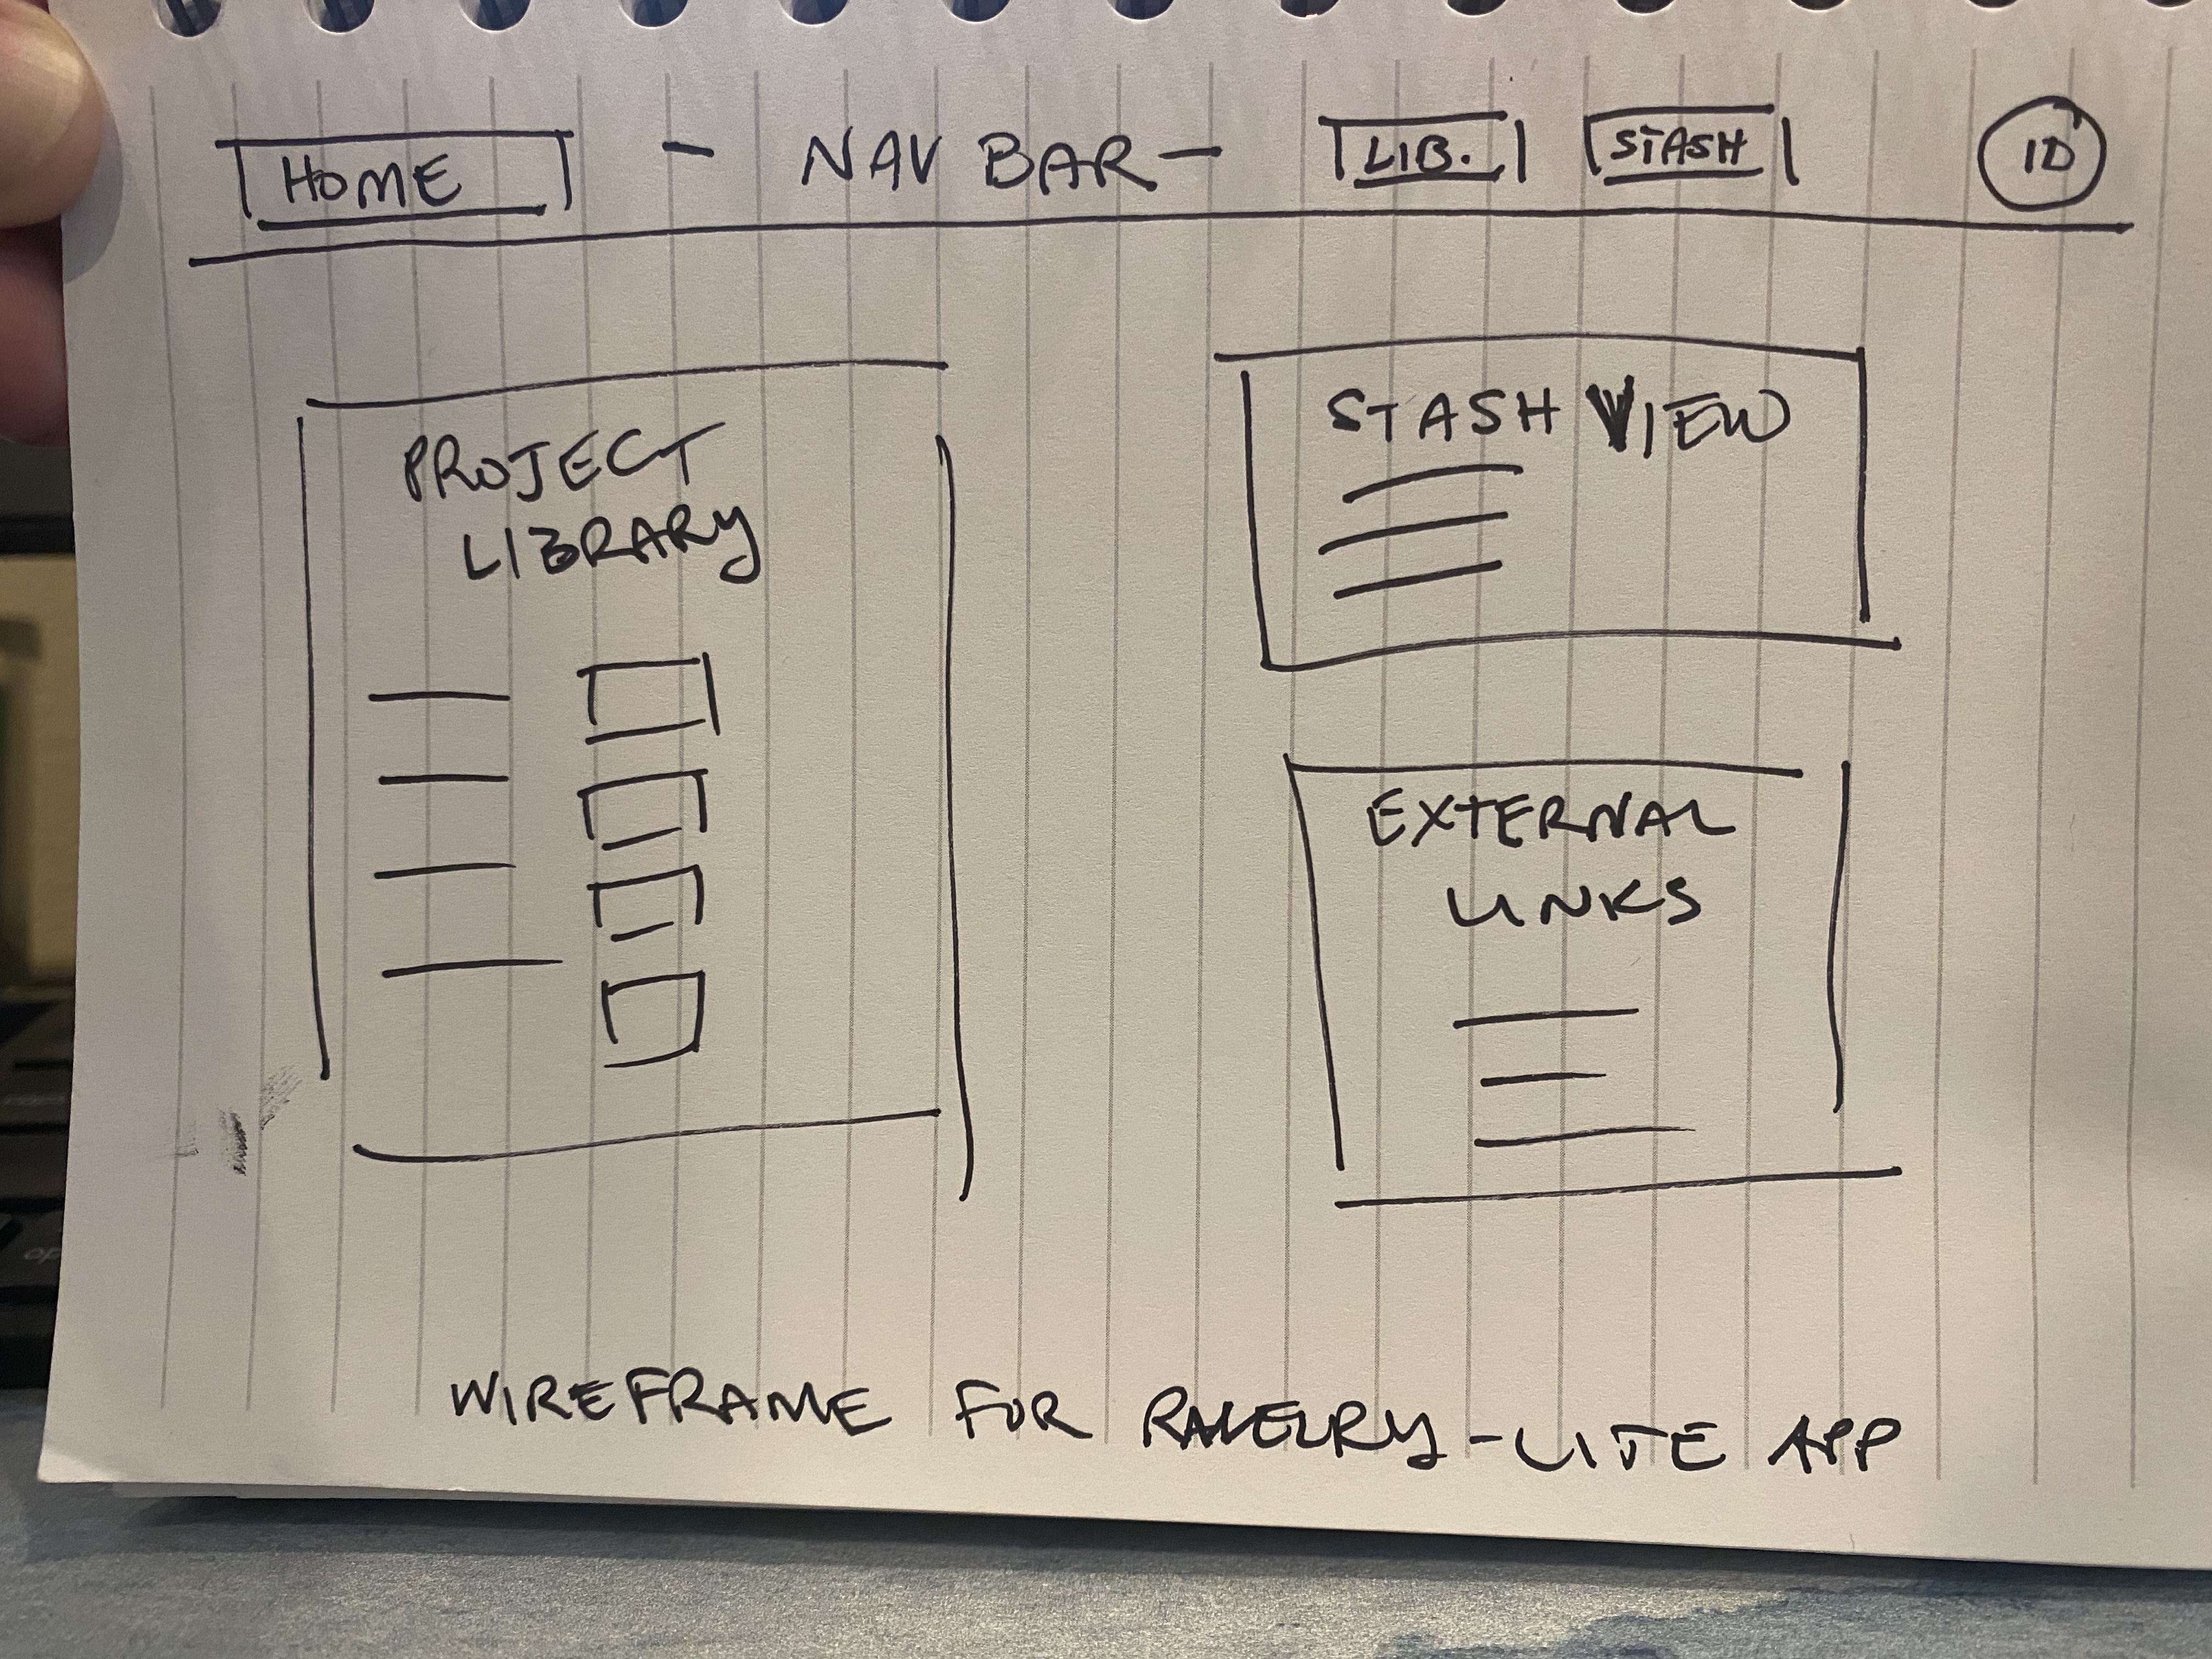 HOME - NAV BAR - LIB. STASH ID
PROJECT
LIBRARY
STASH VIEW
EXTERNAL
LINKS
WIREFRAME FOR RAVELRY-LITE APP